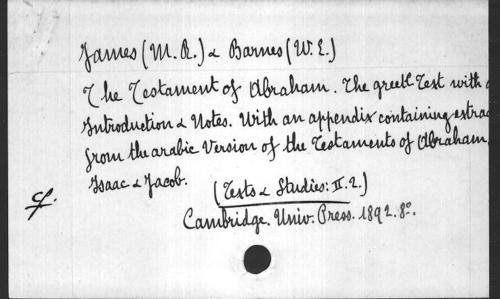 James (M. R.) & Barnes (W. E.)
The Testament of Abraham. The greek Text with
Introduction & Notes. With an appendix containing extrac
from the arabic Version of the Testaments of Abraham,
Isaac & Jacob.
(Texts & Studies: II. 2.)
cf.
Cambridge. Univ. Press. 1892. 8º.